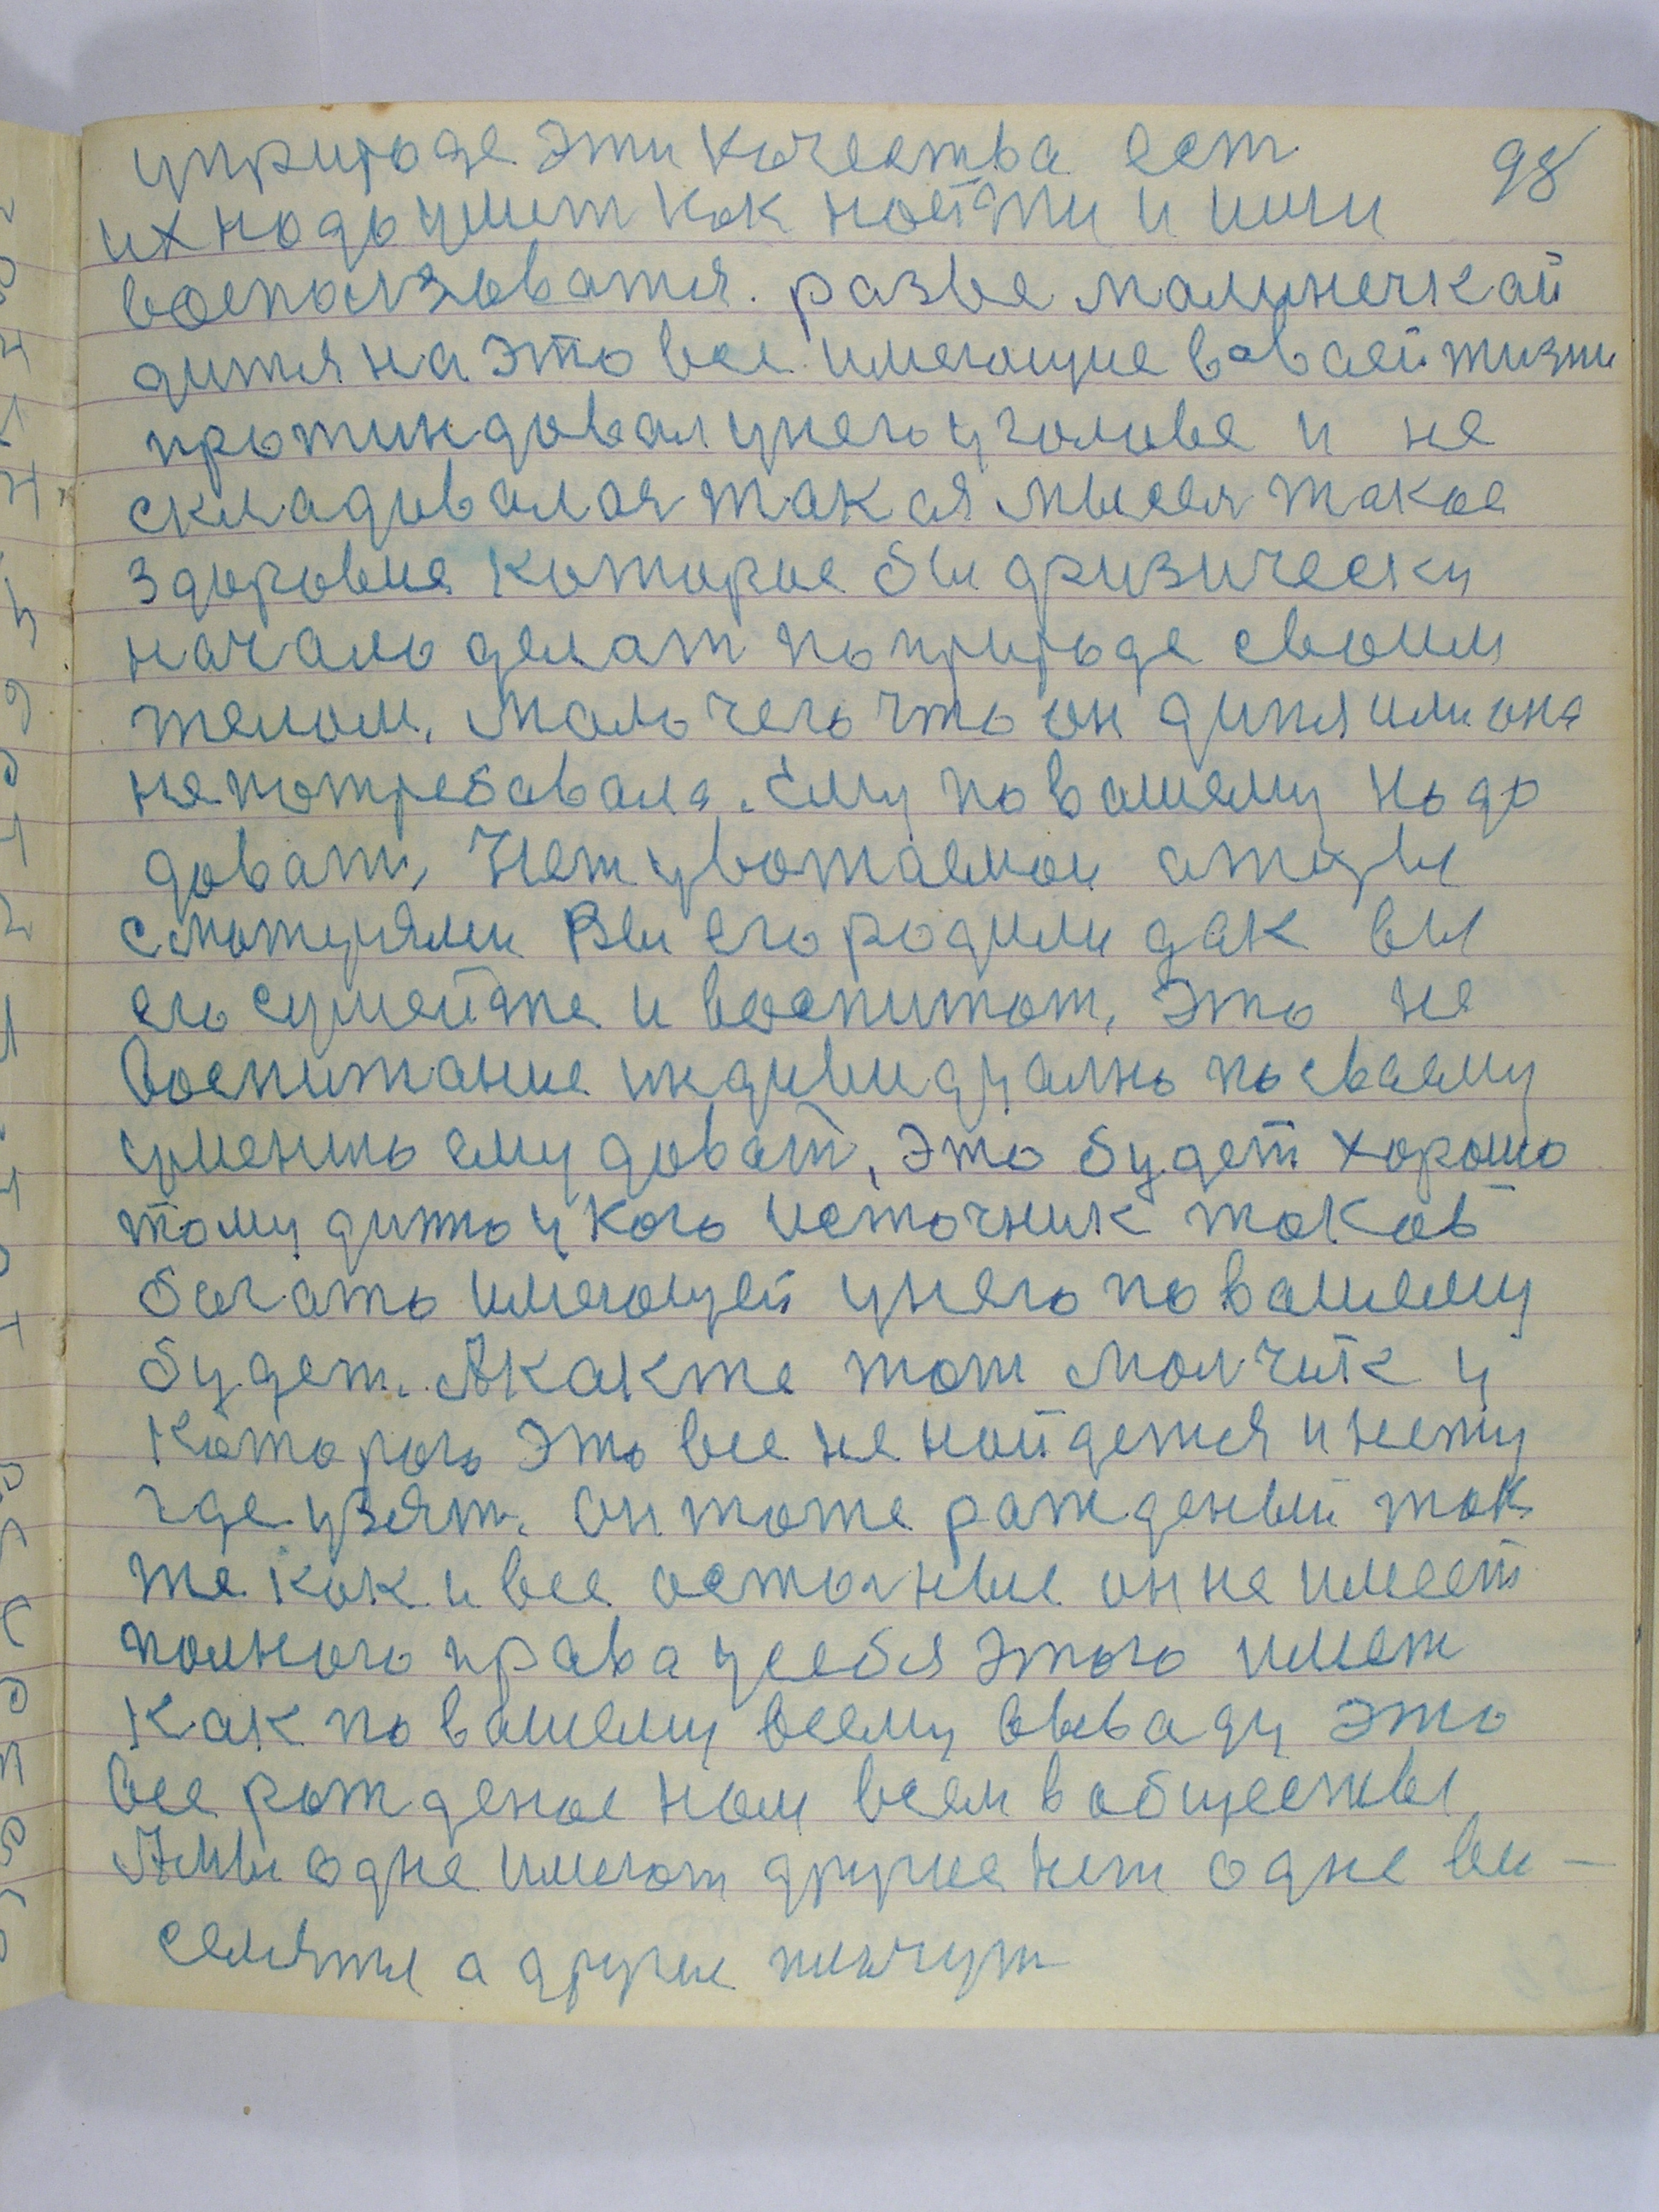 уприроде эти качества ест 98
их надо умет как найти и ими
воспользоватся. разве малинечкай
дитя на это все имеющие в ваей жизни
протиндовал унего у голове и не
складывалоя такая мысля такое
здоровие которое бы физически
начало делат по природе своим
телом. Мало чего что он дитя или она
непотребавала. Ему по вашему надо
доват, Нет уважаемои атцы
сматурями Вы его родили дак вы
его сумейте и воспитат, это не
Воспитание индивидуално по сваему
умению ему доват, это будет хорошо
тому дитю у кого источник таков
богато имеющей унего по вашему
будет. Акакже тот малчик у
Которого это все не найдется и нету
где узят. он тоже рожденый так
же как и все осталные он не имеет
полного права усебя этого имет
как по вашему всему вываду это
все рожденое нам всем в обществы
Амы одне имеют другие нет одне ви-
селятся а другие плачут